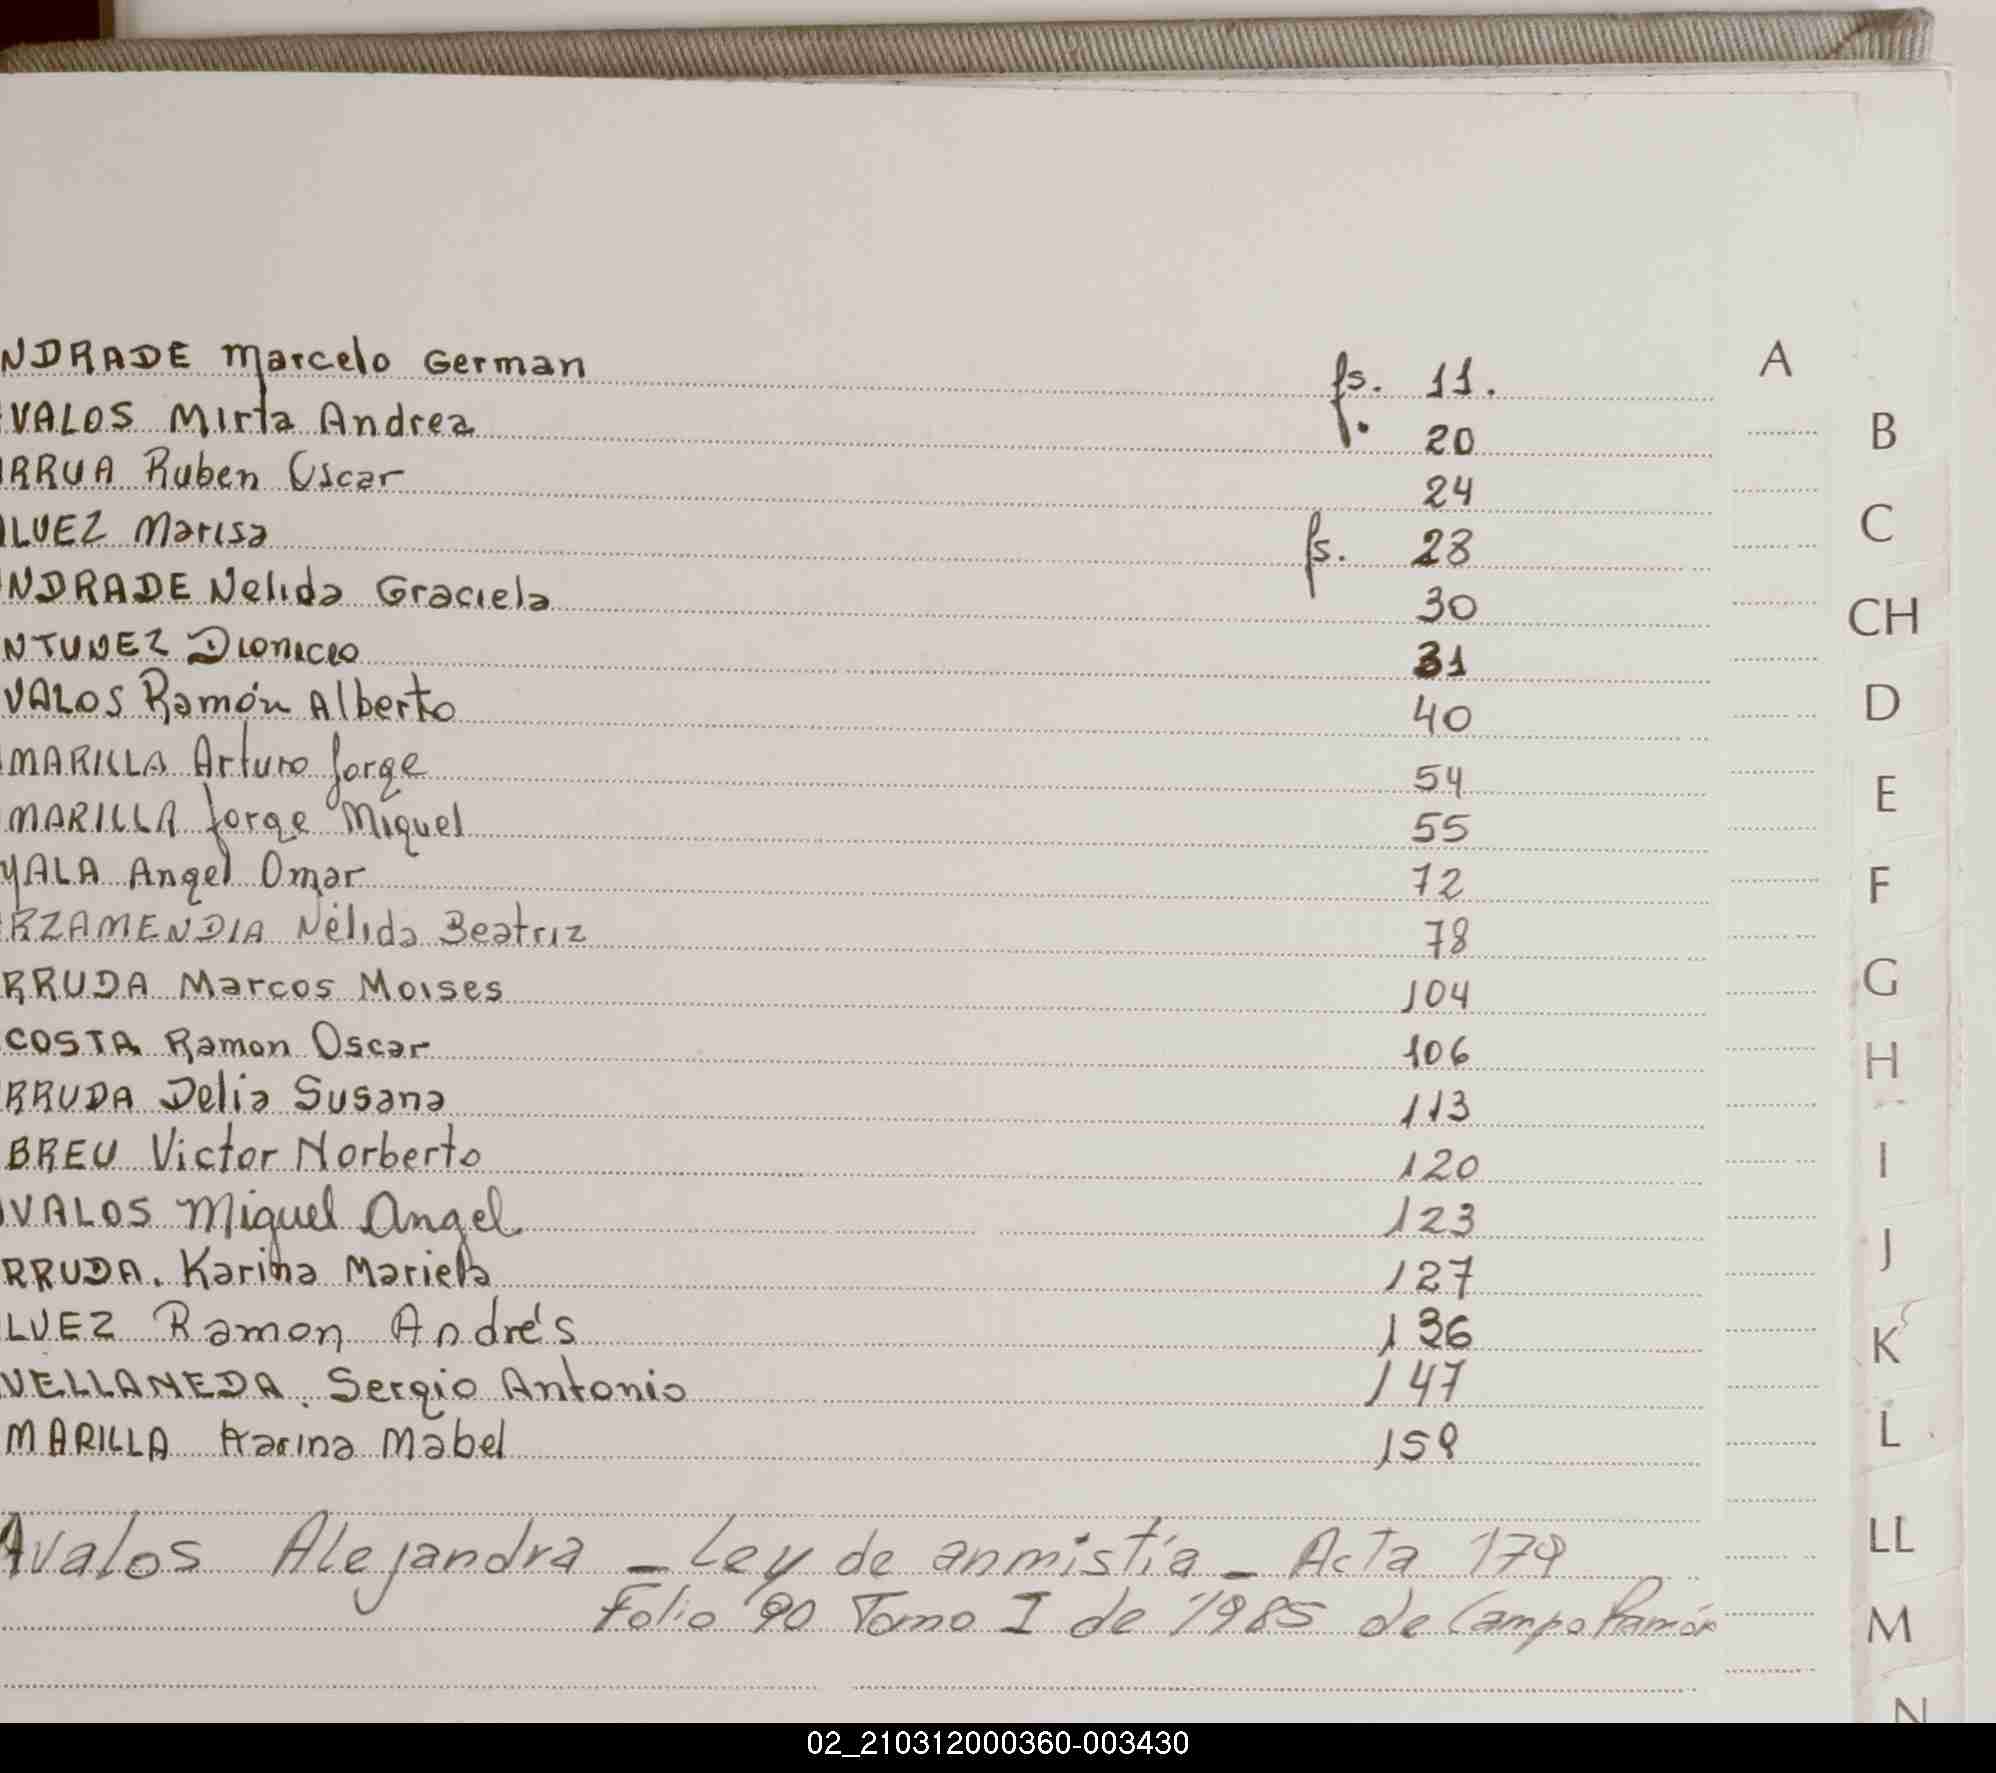 NDRADE Marcelo German fs. 11.
VALOS Mirta Andrea f. 20
RRUA Ruben Oscar 24
LVEZ Marisa fs. 28
NDRADE Nelida Graciela 30
NTUNEZ Dionicio 31
VALOS Ramón Alberto 40
MARILLA Arturo Jorge 54
MARILLA Jorge Miguel 55
YALA Angel Omar 72
RZAMENDIA Nélida Beatriz 78
RRUDA Marcos Moises 104
COSTA Ramon Oscar 106
RRUDA Delia Susana 113
BREU Victor Norberto 120
VALOS Miguel Angel 123
RRUDA. Karina Mariela 127
LVEZ Ramon Andrés 136
VELLANEDA. Sergio Antonio 147
MARILLA Karina Mabel 159
Avalos Alejandra - Ley de anmistía - Acta 179
Folio 90 Tomo I de 1985 de Campo Ramón
A
B
C
CH
D
E
F
G
H
I
J
K
L
LL
M
N
02_210312000360-003430